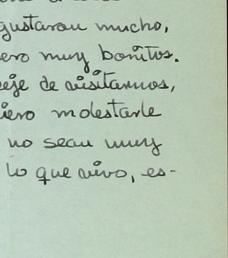 gustaron mucho,
ero muy bonitos.
eje de visitarnos,
iero molestarle
no sean muy
lo que vivo, es-